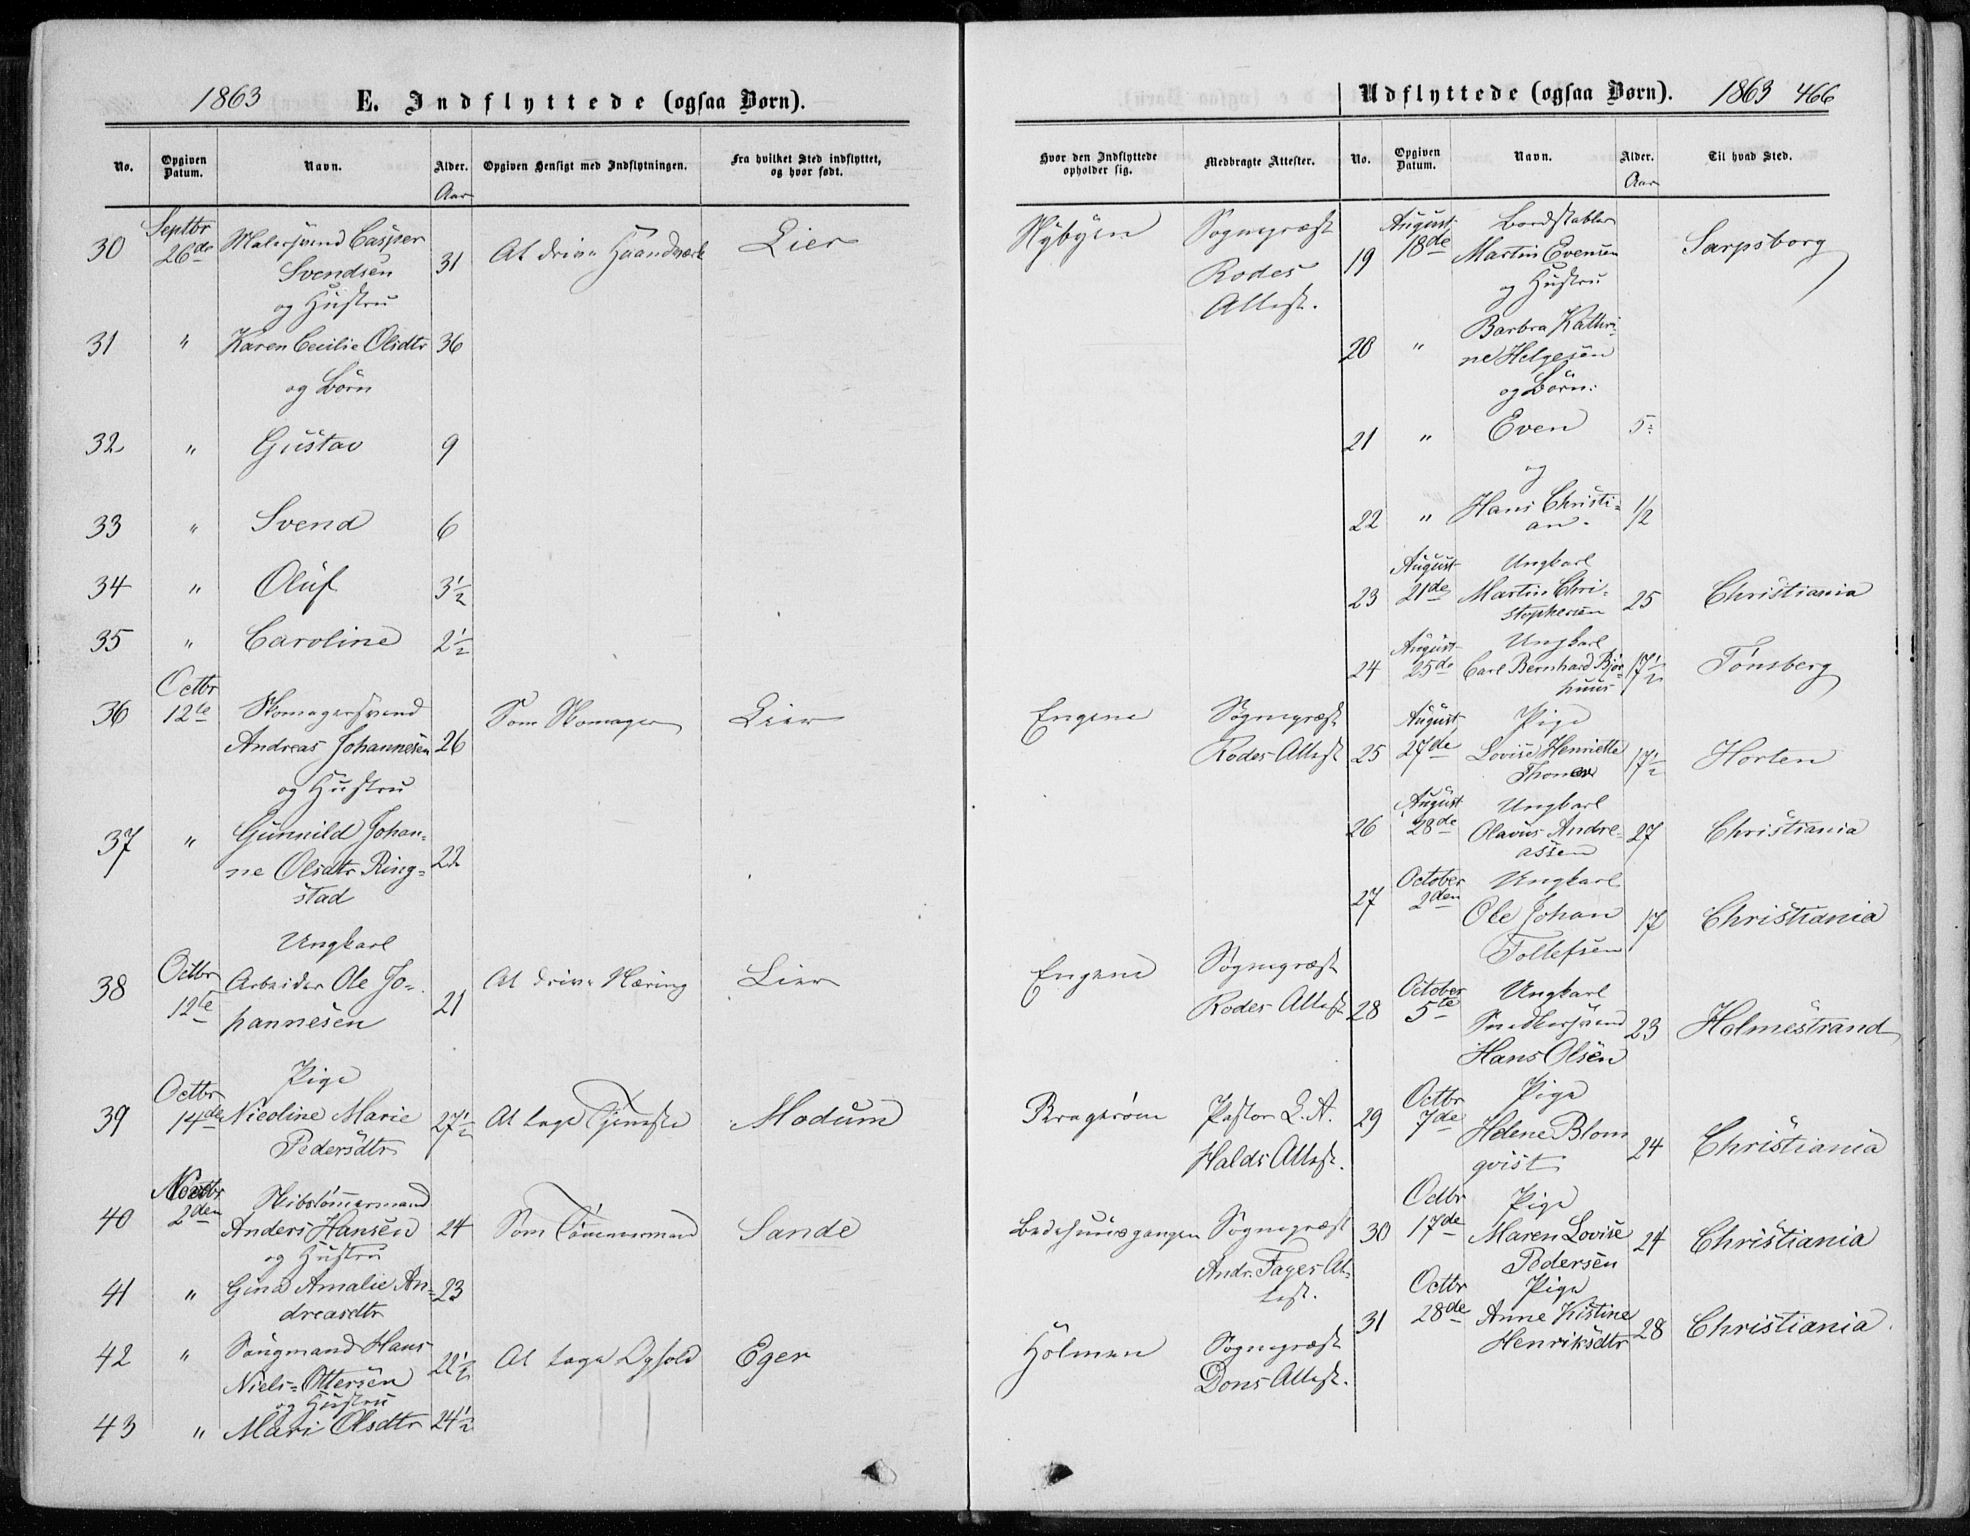 1863
E. Indflyttede (ogsaa Børn).
No.
Opgiven Datum.
Navn.
Alder.
Aar
Opgiven Hensigt med Indflytningen.
Fra hvilket Sted indflyttet, og hvor født.
Hvor den Indflyttede opholder sig.
Medbragte Attester.
30 Septbr 26de Malersvend Casper 31 At drive Haandværk Lier Nybyen Sogneprest
Svendsen Rodes
og Hustru Attest.
31 " Karen Cecilie Olsdtr 36
og Børn
32 " Gustav 9
33 " Svend 6
34 " Oluf 3½
35 " Caroline 2½
36 Octbr 12te Skomagersvend Som Skomager Lier Engene Sognepræst
Andreas Johannesen 26 Rodes Attest
og Hustru
37 " Gunnild Johan-
ne Olsdtr Ring- 22
stad
Ungkarl
38 Octbr 12te Arbeider Ole Jo- 21 At drive Næring Lier Engene Sognepræst
hannesen Rodes Attest
Pige
39 Octbr 14de Nicoline Marie 27½ At tage Tjeneste Modum Bragerøen Pastor L. A.
Pedersdtr Halds Attest.
40 Novbr 2den Skibstømmermand
Anders Hansen 24 Som Tømmermand Sande Bedehuusgangen Sognepræst
og Hustru Andr. Fayes At-
41 " Gina Amalie An- 23 test.
dreasdtr
42 " Saugmand Hans 22½ At tage Ophold Eger Holmen Sognepræst
Niels Ottersen Dons Attest.
og Hustru
43 " Mari Olsdtr 24½
Udflyttede (ogsaa Børn).
1863 466
No.
Opgiven Datum.
Navn.
Alder.
Aar
Til hvad Sted.
19 August 18de Bordstabler
Martin Evensen Sarpsborg
og Hustru
20 " Barbra Kathri-
ne Helgesen
og Børn:
21 " Even 5
og
22 " Hans Christi- ½
an
23 August 21de Ungkarl
Martin Chri- 25 Christiania
stophersen
24 August 25de Ungkarl
Carl Bernhard Bjør- 17½ Tønsberg
huus
25 August 27de Pige
Lovise Henriette 17½ Horten
26 August 28de Ungkarl
Olavus Andre- 27 Christiania
assen
27 October 2den Ungkarl
Ole Johan 17 Christiania
Tollefsen
28 October 5te Ungkarl
Snedkersvend 23 Holmestrand
Hans Olsen
29 Octbr 7de Pige
Helene Blom 24 Christiania
qvist
30 Octbr 17de Pige
Maren Lovise 24 Christiania
Pedersen
31 Octbr 28de Pige
Anne Kistine 28 Christiania.
Henriksdtr